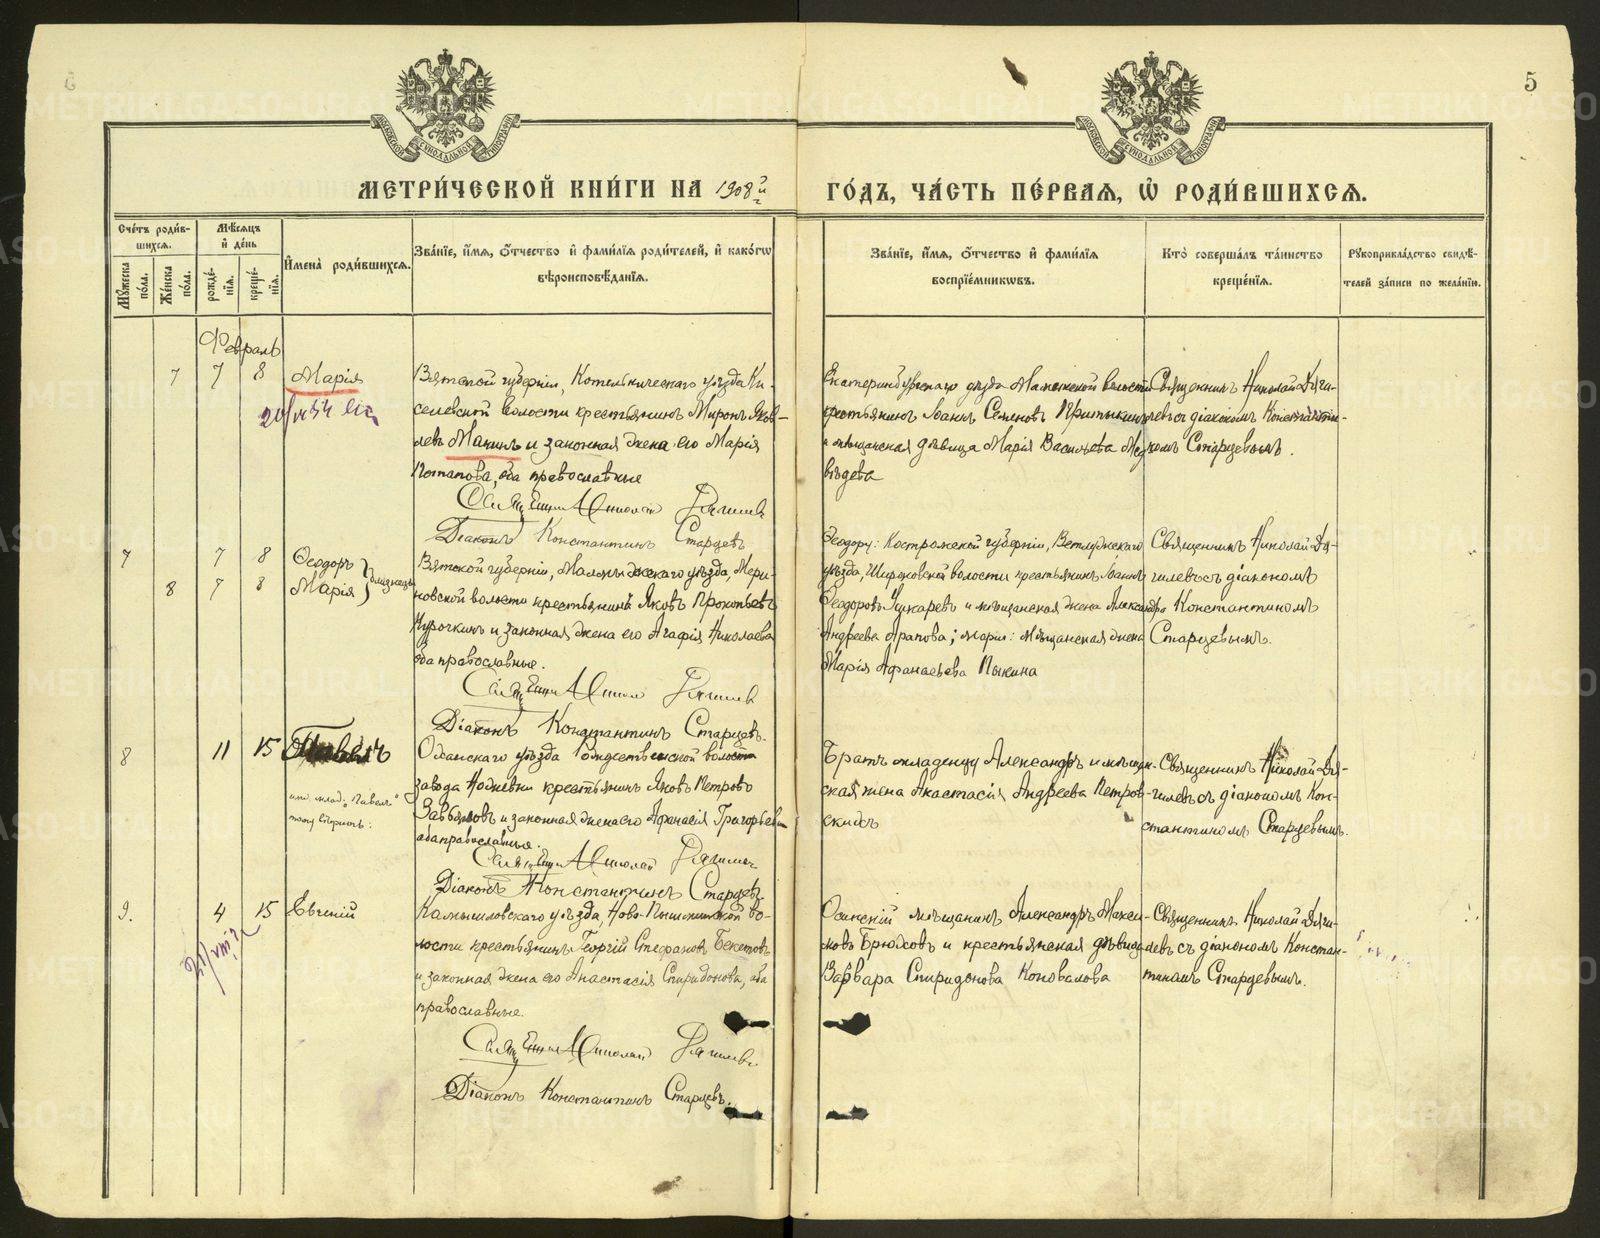 5
МЕТРИ́ЧЕСКОЙ КНИ́ГИ НА 1908й
ГО́ДЪ, ЧА́СТЬ ПЕ́РВАЯ, Ѡ РОДИ́ВШИХСЯ.
Сче́тъ роди́вшихся.
Му́жеска по́ла.
Же́нска по́ла.
Мѣ́сяцъ и де́нь
рожде́нїя.
креще́нїя.
И҆мена̀ роди́вшихся.
Зва́нїе, и҆́мя, ѻ҆́тчество и҆ фами́лїя роди́телей, и҆ како́гѡ
вѣроисповѣ́данїя.
Зва́нїе, и҆́мя, ѻ҆́тчество и҆ фами́лїя
воспрїе́мникѡвъ.
Кто̀ соверша́лъ та́инство
креще́нїя.
Рꙋкоприкла́дство свидѣ́-
телей за́писи по жела́нїю.
Февраль
7 7 8 Марія
Вятской губерніи, Котельническаго уѣзда Ки-
селевской волости крестьянинъ Миронъ Яков-
левъ Макинъ и законная жена его Марія
Потапова, оба православные
Священникъ Николай Дягилевъ
Діаконъ Константинъ Старцевъ
Екатеринбургскаго уѣзда волости
крестьянинъ Іоаннъ Семеновъ Притыкинъ
и мѣщанская дѣвица Марія Васильева Мед-
вѣдева
Священникъ Николай Дяги-
левъ съ діакономъ Константи-
номъ Старцевымъ.
7 7 8 Ѳеодоръ
8 7 8 Марія } близнецы
Вятской губерніи, Малмыжскаго уѣзда, Мери-
новской волости крестьянинъ Яковъ Прокопьевъ
Курочкинъ и законная жена его Агафія Николаева
оба православные.
Священникъ Николай Дягилевъ
Діаконъ Константинъ Старцевъ.
Ѳеодору: Костромской губерніи, Ветлужскаго
уѣзда, Широковской волости крестьянинъ Іоаннъ
Ѳеодоровъ Чушкаревъ и мѣщанская жена Александра
Андреева Арапова; Маріи: мѣщанская жена
Марія Афанасьева Пыкина
Священникъ Николай Дя-
гилевъ съ діакономъ
Константиномъ
Старцевымъ.
8 11 15 Павелъ
имя млад. "Павелъ"
Оханскаго уѣзда Рождественской волости
завода Ножевки крестьянинъ Яковъ Петровъ
Завьяловъ и законная жена его Афанасія Григорьева
оба православные.
Священникъ Николай Дягилевъ
Діаконъ Константинъ Старцевъ.
Братъ младенцу Александръ и мѣщан-
ская жена Анастасія Андреева Петров-
скихъ
Священникъ Николай Дя-
гилевъ съ діакономъ Кон-
стантиномъ Старцевымъ.
9. 4 15 Евгеній
Камышловскаго уѣзда Ново-Пышминской во-
лости крестьянинъ Георгій Стефановъ Бекетовъ
и законная жена его Анастасія Спиридонова, оба
православные.
Священникъ Николай Дягилевъ
Діаконъ Константинъ Старцевъ.
Осинскій мѣщанинъ Александръ Макси-
мовъ Брюховъ и крестьянская дѣвица
Варвара Спиридонова Коновалова
Священникъ Николай Дяги-
левъ съ діакономъ Констан-
тиномъ Старцевымъ.